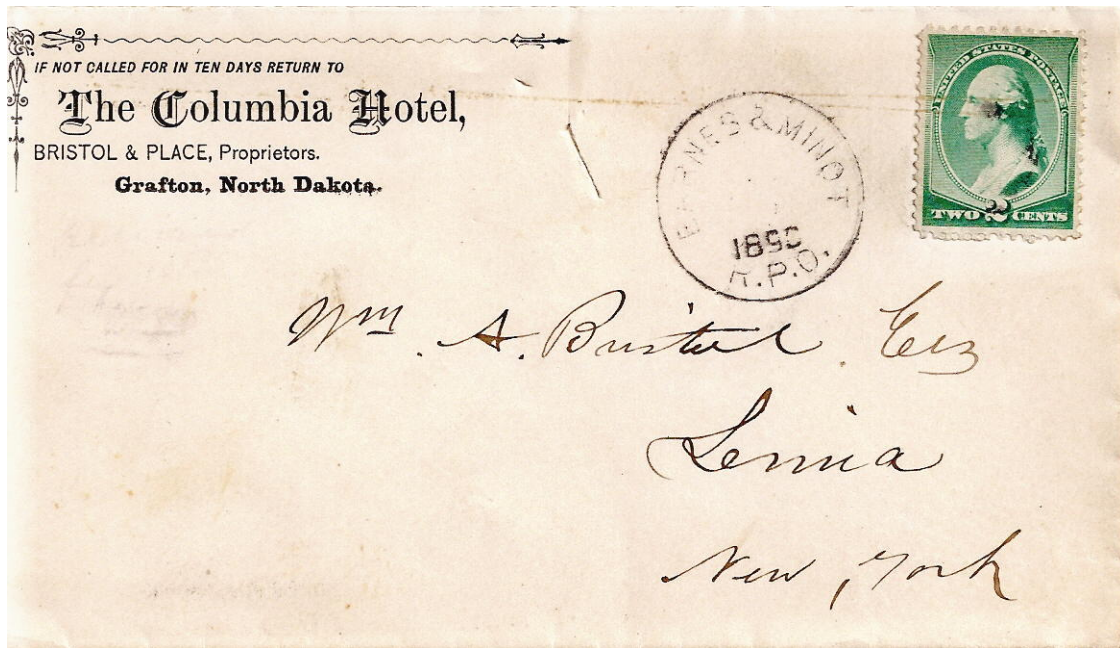 IF NOT CALLED FOR IN TEN DAYS RETURN TO
The Columbia Hotel,
BRISTOL & PLACE, Proprietors.
Grafton, North Dakota.
BARNES & MINOT
1890
R.P.O.
UNITED STATES POSTAGE
TWO 2 CENTS
Wm. A. Bristol. Esq
New York